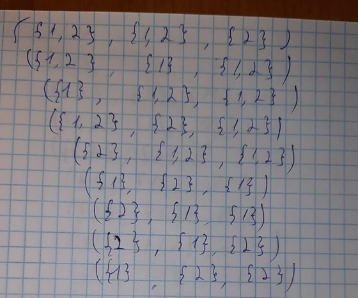 ({1,2}, {1,2}, {2})
({1,2}, {1}, {1,2})
({1}, {1,2}, {1,2})
({1,2}, {2}, {1,2})
({2}, {1,2}, {1,2})
({1}, {2}, {1})
({2}, {1}, {1})
({2}, {1}, {2})
({1}, {2}, {2})